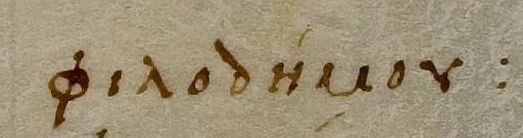 φιλοδήμου :